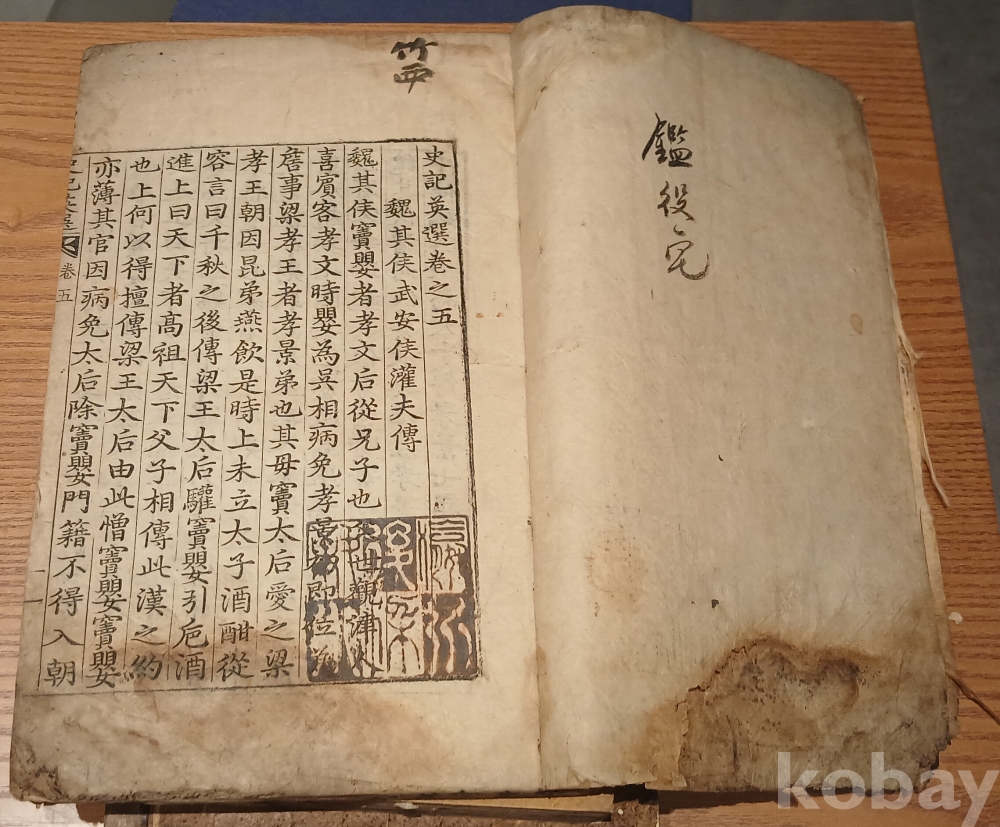 鑑役宅
竹西
史記英選卷之五
魏其侯武安侯灌夫傳
魏其侯竇嬰者孝文后從兄子也父世觀津人
喜賓客孝文時嬰為吳相病免孝景初即位為
詹事梁孝王者孝景弟也其母竇太后愛之梁
孝王朝因昆弟燕飲是時上未立太子酒酣從
容言曰千秋之後傳梁王太后驩竇嬰引卮酒
進上曰天下者高祖天下父子相傳此漢之約
也上何以得擅傳梁王太后由此憎竇嬰竇嬰
亦薄其官因病免太后除竇嬰門籍不得入朝
史記英選 卷五
kobay